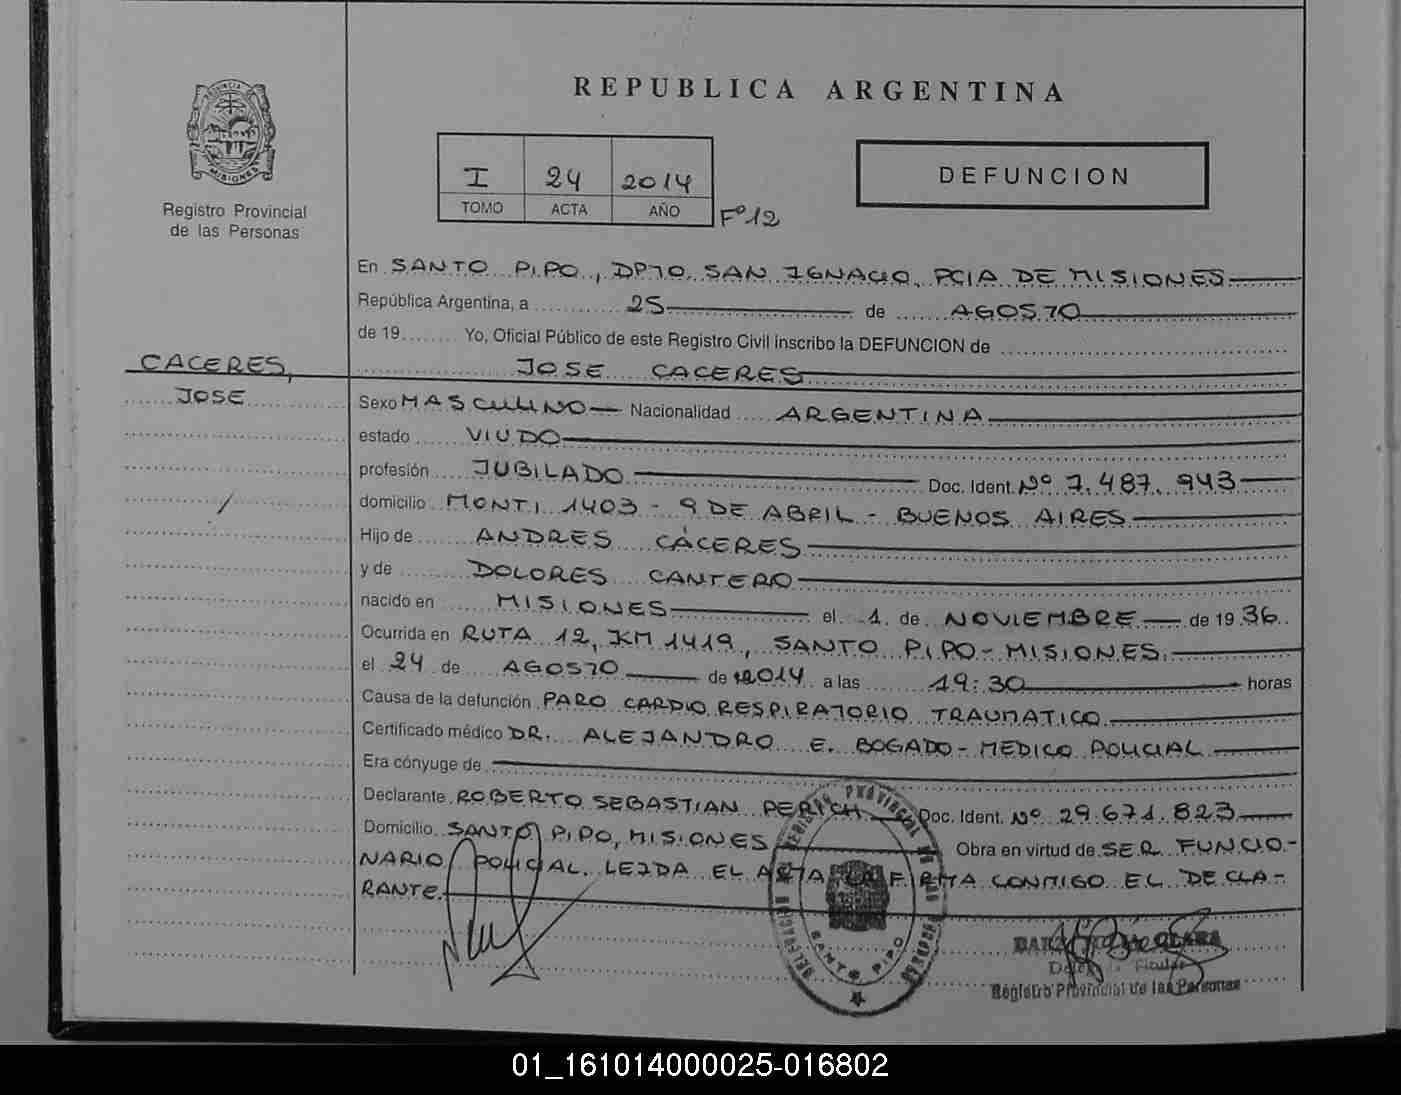 REPUBLICA ARGENTINA
PROVINCIA DE
MISIONES
Registro Provincial
de las Personas
I 24 2014
TOMO ACTA AÑO
Fº 12
DEFUNCION
En SANTO PIPO, DPTO SAN IGNACIO, PCIA DE MISIONES
República Argentina, a 25 de AGOSTO
de 19 Yo, Oficial Público de este Registro Civil inscribo la DEFUNCION de
CACERES,
JOSE
JOSE CACERES
Sexo MASCULINO Nacionalidad ARGENTINA
estado VIUDO
profesión JUBILADO Doc. Ident. Nº 7.487.943
domicilio MONTI 1403 - 9 DE ABRIL - BUENOS AIRES
Hijo de ANDRES CÁCERES
y de DOLORES CANTERO
nacido en MISIONES el 1 de NOVIEMBRE de 1936
Ocurrida en RUTA 12, KM 1419, SANTO PIPO - MISIONES
el 24 de AGOSTO de 2014 a las 19:30 horas
Causa de la defunción PARO CARDIO RESPIRATORIO TRAUMATICO
Certificado médico DR. ALEJANDRO E. BOGADO - MEDICO POLICIAL
Era cónyuge de
Declarante ROBERTO SEBASTIAN PERICH Doc. Ident. Nº 29.671.823
Domicilio SANTO PIPO, MISIONES Obra en virtud de SER FUNCIO-
NARIO POLICIAL. LEIDA EL ACTA LA FIRMA CONMIGO EL DECLA-
RANTE.
SANTO PIPO
CLARA
Registro Provincial de las Personas
01_161014000025-016802